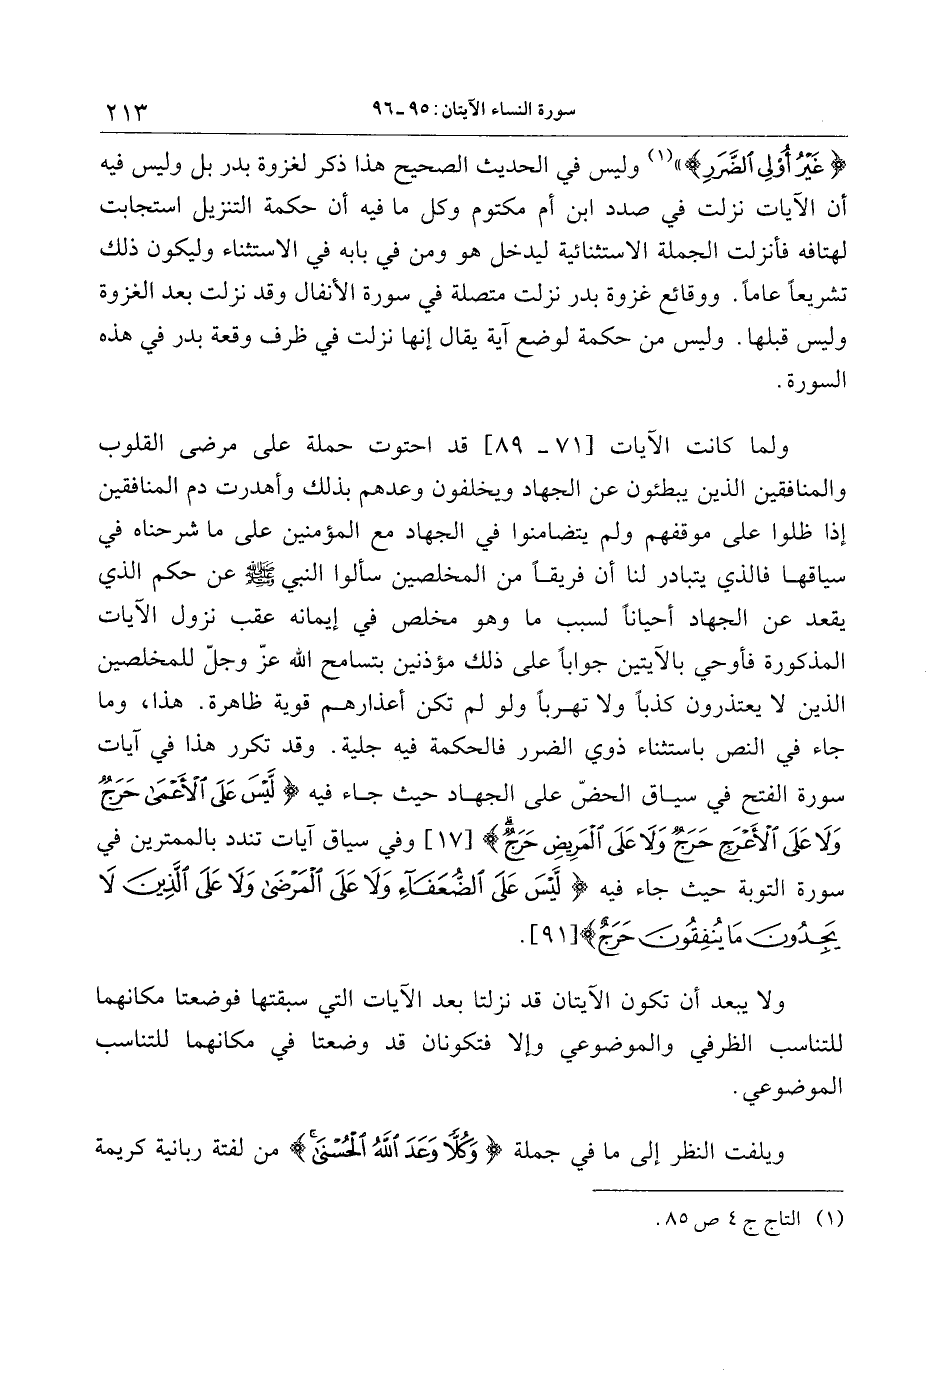 سورة النساء الآيتان: ٩٥ـ٩٦ ٢١٣
﴿ غَيْرُ أُوْلِي ٱلضَّرَرِ ﴾»(١) وليس في الحديث الصحيح هذا ذكر لغزوة بدر بل وليس فيه
أن الآيات نزلت في صدد ابن أم مكتوم وكل ما فيه أن حكمة التنزيل استجابت
لهتافه فأنزلت الجملة الاستثنائية ليدخل هو ومن في بابه في الاستثناء وليكون ذلك
تشريعاً عاماً. ووقائع غزوة بدر نزلت متصلة في سورة الأنفال وقد نزلت بعد الغزوة
وليس قبلها. وليس من حكمة لوضع آية يقال إنها نزلت في ظرف وقعة بدر في هذه
السورة.
ولما كانت الآيات [٧١ ـ ٨٩] قد احتوت حملة على مرضى القلوب
والمنافقين الذين يبطئون عن الجهاد ويخلفون وعدهم بذلك وأهدرت دم المنافقين
إذا ظلوا على موقفهم ولم يتضامنوا في الجهاد مع المؤمنين على ما شرحناه في
سياقها فالذي يتبادر لنا أن فريقاً من المخلصين سألوا النبي ﷺ عن حكم الذي
يقعد عن الجهاد أحياناً لسبب ما وهو مخلص في إيمانه عقب نزول الآيات
المذكورة فأوحي بالآيتين جواباً على ذلك مؤذنين بتسامح الله عزّ وجلّ للمخلصين
الذين لا يعتذرون كذباً ولا تهرباً ولو لم تكن أعذارهم قوية ظاهرة. هذا، وما
جاء في النص باستثناء ذوي الضرر فالحكمة فيه جلية. وقد تكرر هذا في آيات
سورة الفتح في سياق الحضّ على الجهاد حيث جاء فيه ﴿ لَّيْسَ عَلَى ٱلْأَعْمَىٰ حَرَجٌ
وَلَا عَلَى ٱلْأَعْرَجِ حَرَجٌ وَلَا عَلَى ٱلْمَرِيضِ حَرَجٌۗ ﴾ [١٧] وفي سياق آيات تندد بالممترين في
سورة التوبة حيث جاء فيه ﴿ لَّيْسَ عَلَى ٱلضُّعَفَآءِ وَلَا عَلَى ٱلْمَرْضَىٰ وَلَا عَلَى ٱلَّذِينَ لَا
يَجِدُونَ مَا يُنفِقُونَ حَرَجٌ ﴾[٩١].
ولا يبعد أن تكون الآيتان قد نزلتا بعد الآيات التي سبقتها فوضعتا مكانهما
للتناسب الظرفي والموضوعي وإلا فتكونان قد وضعتا في مكانهما للتناسب
الموضوعي.
ويلفت النظر إلى ما في جملة ﴿ وَكُلًّا وَعَدَ ٱللَّهُ ٱلْحُسْنَىٰۚ ﴾ من لفتة ربانية كريمة
(١) التاج ج ٤ ص ٨٥.